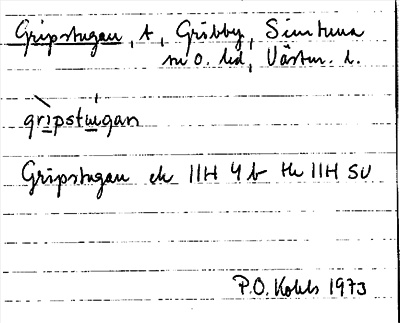 Gripstugan, t, Gribby, Simtuna
sn o. hd, Västm. l.
gripstugan
Gripstugan ek 11H 4b tk 11H SV
P.O. Kohls 1973